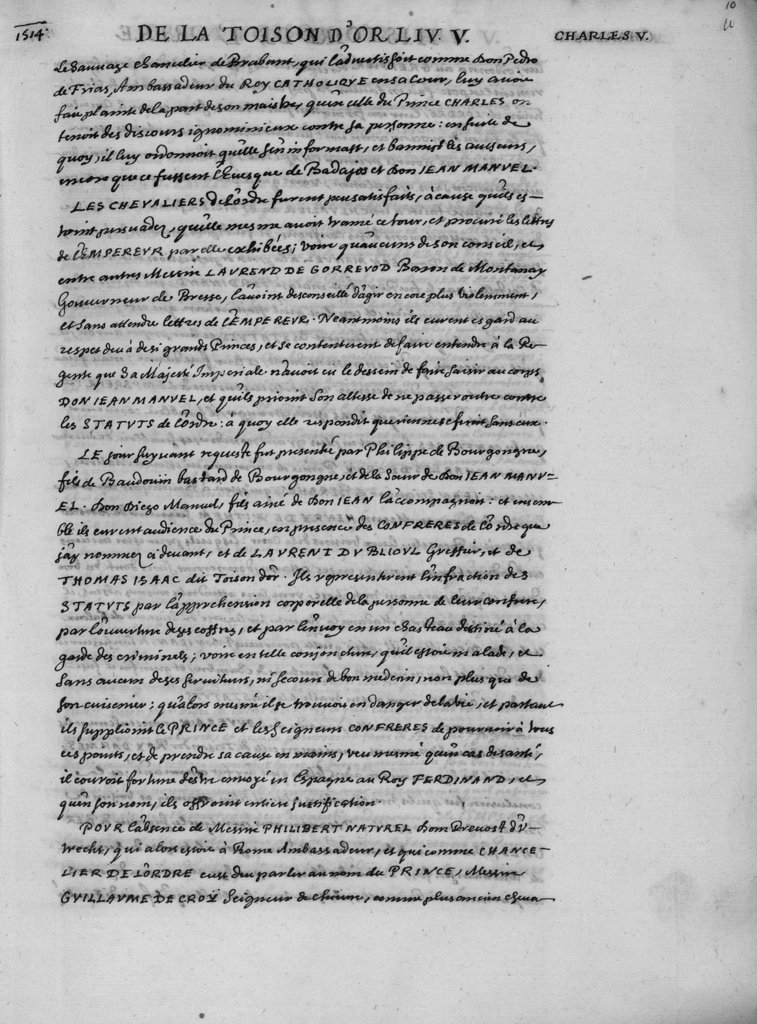 10
1514.
DE LA TOISON D'OR LIV. V.
CHARLES V.
le Sauvage chancelier de Brabant, qui l'advertissoit comme Don Pedro
de Frias, Ambassadeur du ROY CATHOLIQUE en sa Cour, luy avoit
fait plainte de la part de son maistre, qu'en celle du Prince CHARLES on
tenoit des discours ignominieux contre sa personne: en suite de
quoy, il luy ordonnoit qu'elle s'en informast, et bannist les auteurs,
encore que ce fussent l'Evesque de Badajos et Don JEAN MANVEL.
LES CHEVALIERS de l'ordre furent peu satisfaits, à cause qu'ils es-
toint persuadez, qu'elle mesme avoit tramé ce tour, et procuré les lettres
de L'EMPEREVR par elle exhibées; voire qu'aucuns de son conseil, et
entre autres Messire LAVREND DE GORREVOD Baron de Montanay
Gouverneur de Bresse, l'avoint desconseillé d'agir encore plus violemment,
et sans attendre lettres de L'EMPEREVR. Neantmoins ils eurent esgard au
respect deu à de si grands Princes, et se contenterent de faire entendre à la Re-
gente que Sa Majesté Imperiale n'avoit eu le dessein de faire saisir au corps
DON JEAN MANVEL, et qu'ils prioint Son altesse de ne passer outre contre
les STATVTS de l'ordre: à quoy elle respondit que rien ne se feroit sans eux.
LE jour suyvant requeste fut presenté par Philippe de Bourgongne,
fils de Baudouin bastard de Bourgongne, et de la Sœur de Don JEAN MANV-
EL. Don Diego Manuel, fils aisné de Don JEAN l'accompagnoit: et ensem-
ble ils eurent audience du Prince, en presence des CONFRERES de l'ordre que
j'ay nommez cidevant, et de LAVRENT DV BLIOVL Greffier, et de
THOMAS ISAAC dit Toison d'or. Ils representerent l'infraction des
STATVTS par l'apprehension corporelle de la personne de leur confrere,
par l'ouverture de ses coffres, et par l'envoy en un chasteau destiné à la
garde des criminels; voire en telle conjoncture, qu'il estoit malade, et
sans aucun de ses serviteurs, ni secours de bon medecin, non plus que de
son cuisinier: qu'alors mesme il se trouvoit en danger de la vie, et partant
ils supplioint le PRINCE et les Seigneurs CONFRERES de pourvoir à tous
ces points, et de prendre sa cause en mains, veu mesme qu'en cas de santé,
il couroit fortune d'estre envoyé en Espagne au Roy FERDINAND, et
qu'en son nom, ils offroint entiere justification.
POVR l'absence de Messire PHILIBERT NATVREL Dom Prevost d'V-
trecht, qui alors estoit à Rome Ambassadeur, et qui comme CHANCE-
LIER DE L'ORDRE eust deu parler au nom du PRINCE, Messire
GVILLAVME DE CROY Seigneur de Chievre, comme plus ancien cheva-